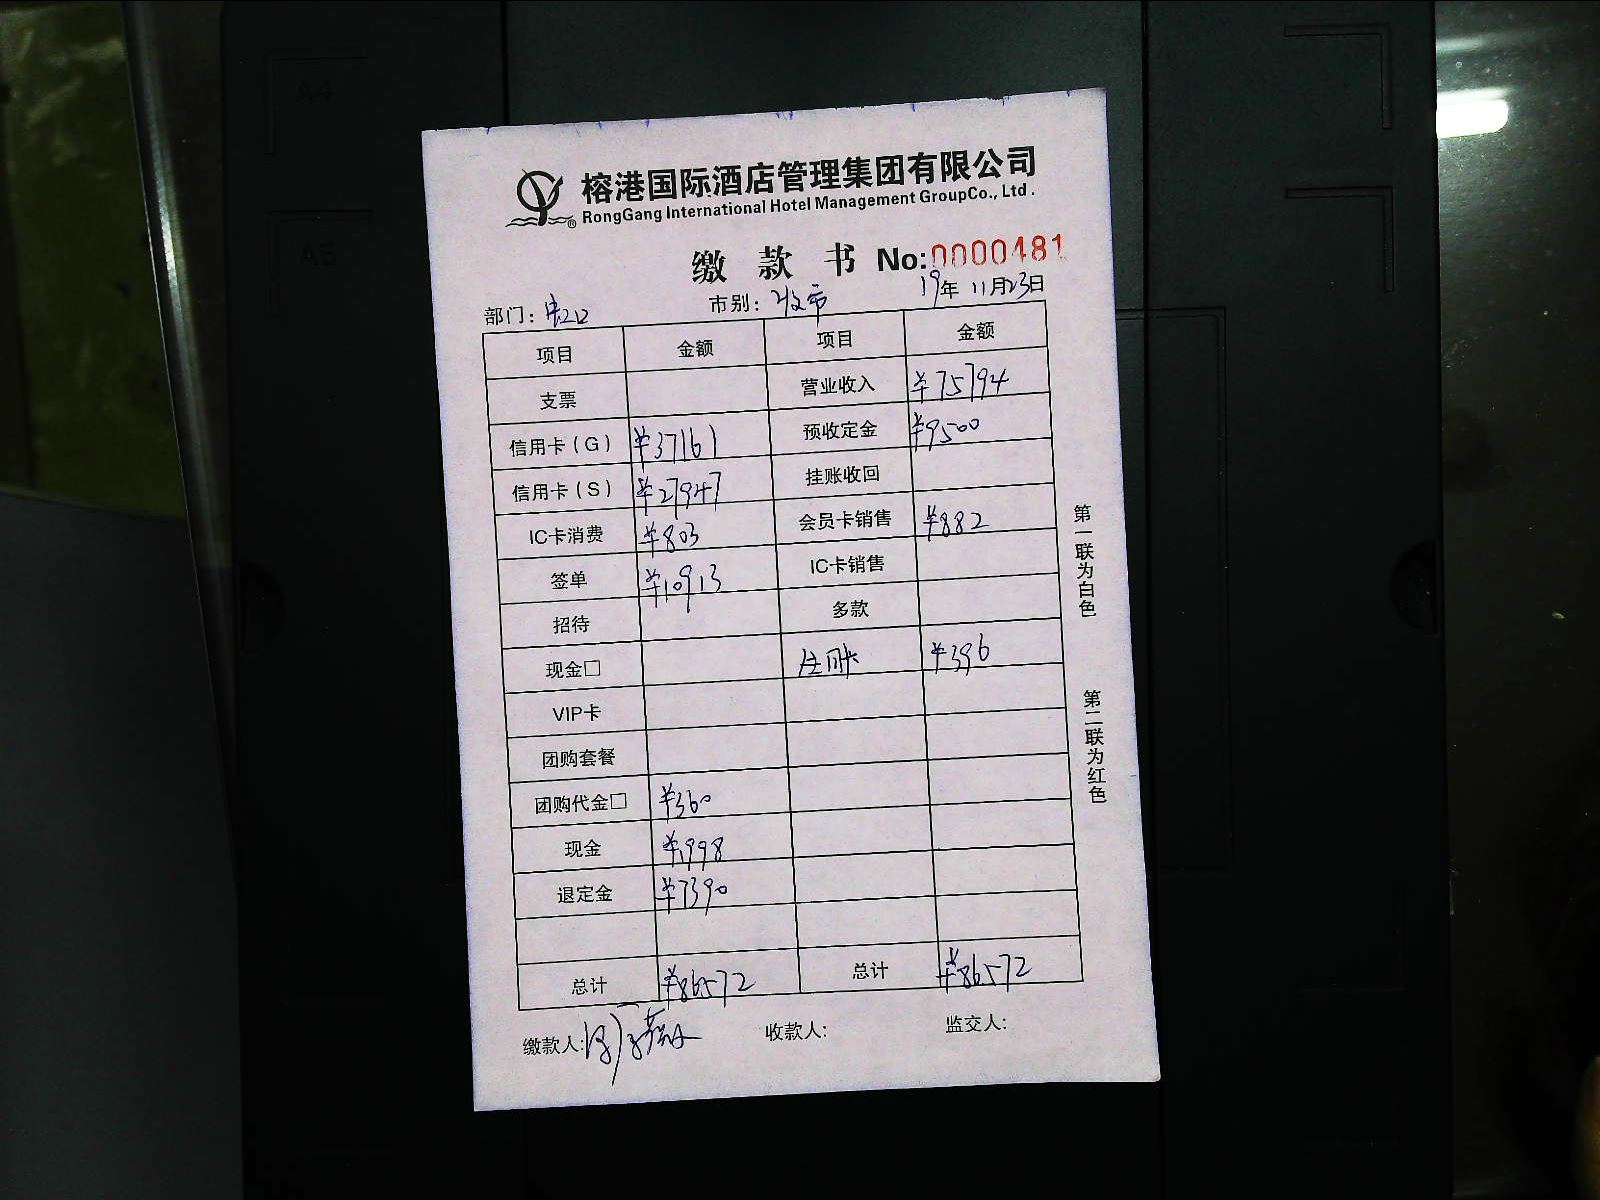 榕港国际酒店管理集团有限公司
RongGang International Hotel Management GroupCo., Ltd.
缴 款 书 No:0000481
部门: 市别: 市 19年 11月23日
项目 金额 项目 金额
支票 营业收入 ¥75794
信用卡(G) ¥37161 预收定金 ¥9500
信用卡(S) ¥27947 挂账收回
IC卡消费 ¥803 会员卡销售 ¥882
签单 ¥10913 IC卡销售
招待 多款
现金□ ¥396
VIP卡
团购套餐
团购代金□ ¥360
现金 ¥1998
退定金 ¥7390
总计 ¥86572 总计 ¥86572
缴款人: 收款人: 监交人:
第一联为白色
第二联为红色
A4
A5